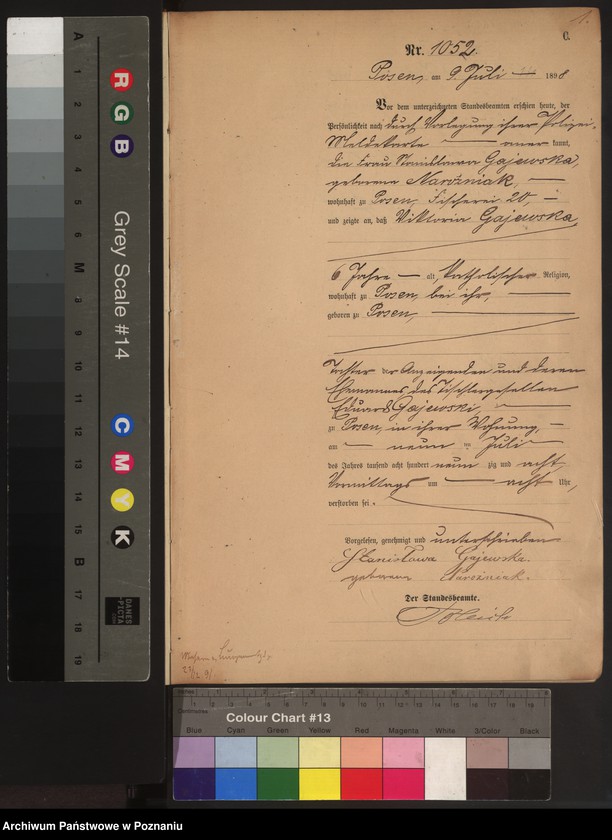 1.
C.
Nr. 1052.
Posen, am 9. Juli 1898
Vor dem unterzeichneten Standesbeamten erschien heute, der
Persönlichkeit nach durch Vorlegung ihrer Polizei-
Meldekarte kannt,
die Frau Stanislawa Gajewska,
geborene Narożniak,
wohnhaft zu Posen, Fischerei 20,
und zeigte an, daß Viktoria Gajewska,
6 Jahre alt, katholischer Religion,
wohnhaft zu Posen, bei ihr,
geboren zu Posen,
Tochter der Anzeigenden und deren
Ehemannes des Tischlergesellen
Eduard Gajewski,
zu Posen, in ihrer Wohnung,
am neun ten Juli
des Jahres tausend acht hundert neun zig und acht
Vormittags um acht Uhr,
verstorben sei.
Vorgelesen, genehmigt und unterschrieben
Stanisława Gajewska.
geborene Narożniak.
Der Standesbeamte.
A 1 2 3 4 5 6 M 8 9 10 11 12 13 14 15 B 17 18 19
R G B
Grey Scale #14
C M Y K
DANES
PICTA
.com
Inches
Centimetres
Colour Chart #13
Blue Cyan Green Yellow Red Magenta White 3/Color Black
Archiwum Państwowe w Poznaniu